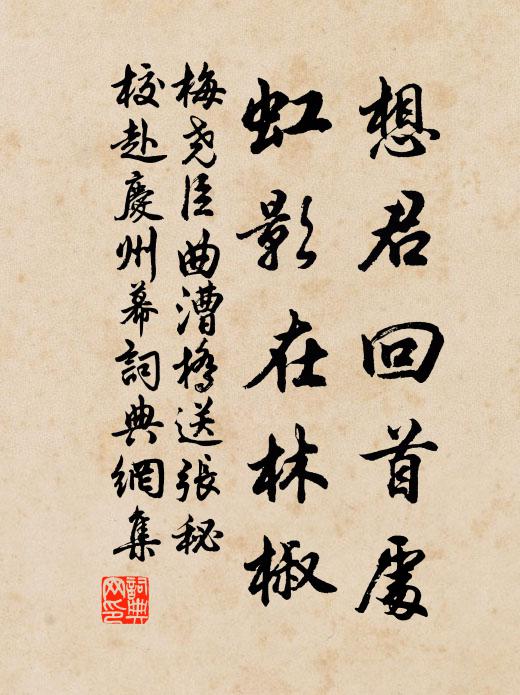 想君回首處
虹影在林椒
梅堯臣曲漕橋送張秘
校赴慶州幕詞典網集
詞典
网印